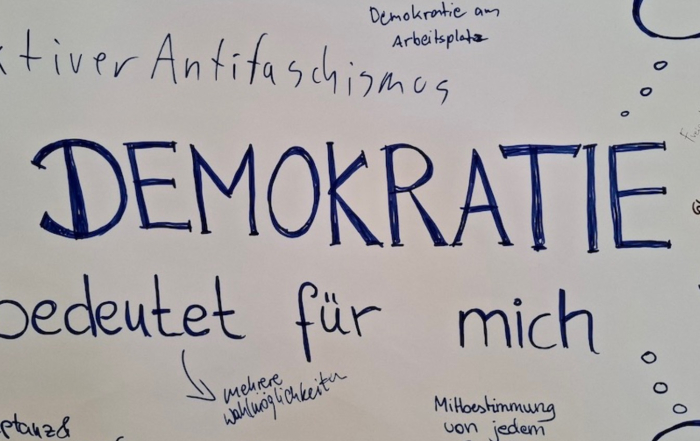 Demokratie am
Arbeitsplatz
ktiver Antifaschismos
DEMOKRATIE
bedeutet für mich
mehrere
wahlmöglichkeiten
Mitbestimmung
von jedem
ptanz&